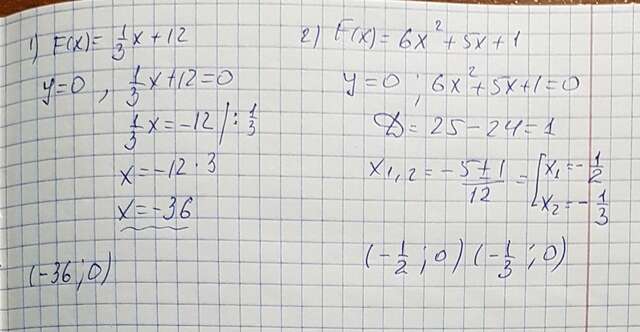 1) F(x) = 1/3 x + 12
y=0 , 1/3 x + 12 = 0
1/3 x = -12 | : 1/3
x = -12 · 3
x = -36
(-36 ; 0)
2) F(x) = 6x² + 5x + 1
y = 0 ; 6x² + 5x + 1 = 0
D = 25 - 24 = 1
x₁,₂ = (-5 ± 1)/12 = [ x₁ = -1/2
x₂ = -1/3
(-1/2 ; 0) (-1/3 ; 0)